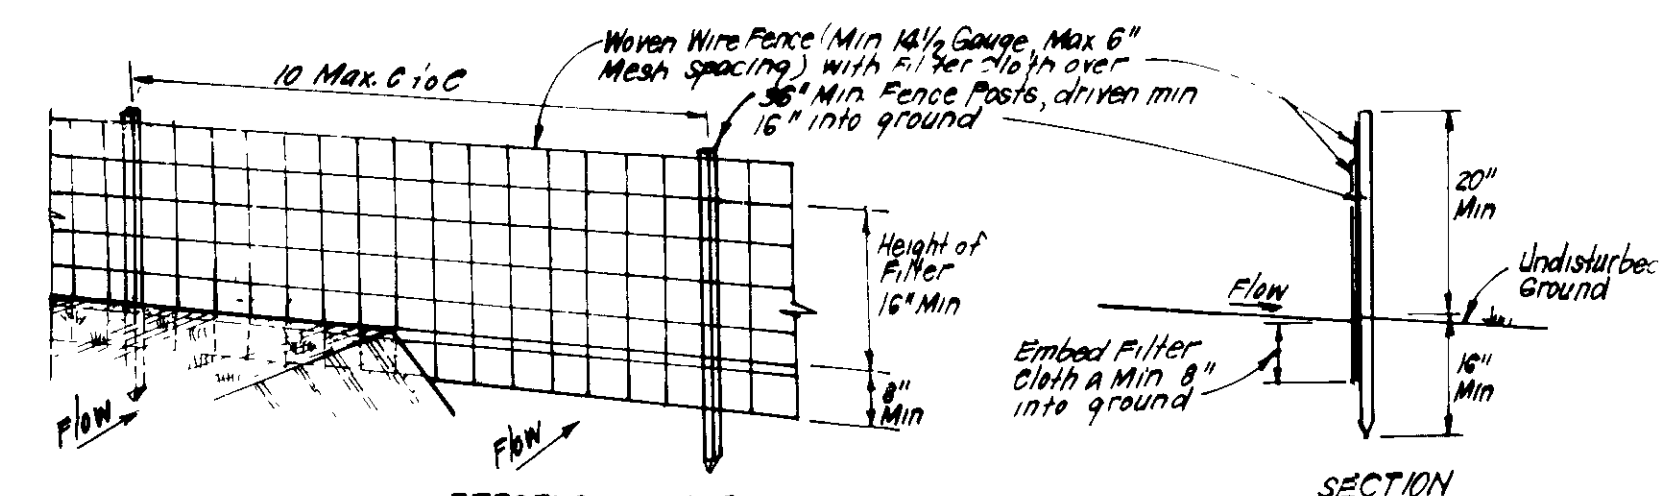 Woven Wire Fence (Min 14½ Gauge, Max 6"
Mesh spacing) with Filter Cloth over
10 Max. C to C
36" Min. Fence Posts, driven min
16" into ground
Height of
Filter
16" Min
8"
Min
Flow
Flow
20"
Min
Undisturbed
Ground
Flow
Embed Filter
Cloth a Min 8"
into ground
16"
Min
SECTION